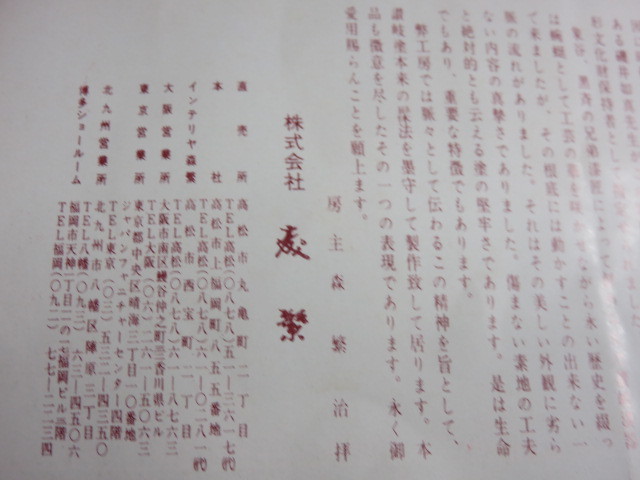 ある磯井如眞を生
形文化財保持者として
は蜿蜒として工芸の竜を輝かせながら永い歴史を綴っ
て来ましたが、その根底には動かすことの出来ない一
脈の流れがありました。それはその美しい外観に劣ら
ない内容の真摯さでありました。傷まない素地の工夫
と絶対的とも云える塗の堅牢さであります。是は生命
でもあり、重要な特徴でもあります。
弊工房では脈々として伝わるこの精神を旨として、
讃岐塗本来の採法を墨守して製作致して居ります。本
品も微意を尽したその一つの表現であります。永く御
愛用賜らんことを願上ます。
房主森繁治拝
株式会社 森繁
直売所 高松市丸亀町二丁目
TEL高松(〇八七八)五一―三六一七㈹
本社 高松市上福岡町八五五番地
TEL高松(〇八七八)六一―〇二八一㈹
インテリヤ森繁 高松市西宝町二丁目
TEL高松(〇八七八)六一―八七六三
大阪営業所 大阪市南区鰻谷仲之町三香川県ビル
TEL大阪(〇六)二六一―五〇六三
東京営業所 東京都中央区晴海三丁目一〇番地
ジャパンファニチャーセンター四階
TEL東京(〇三)五三二―四三五〇
北九州営業所 北九州市八幡区陣原二丁目
TEL八幡(〇九三)六三―四五〇六
博多ショールーム 福岡市天神一丁目二の一七福岡ビル三階
TEL福岡(〇九二)七七―二二三四